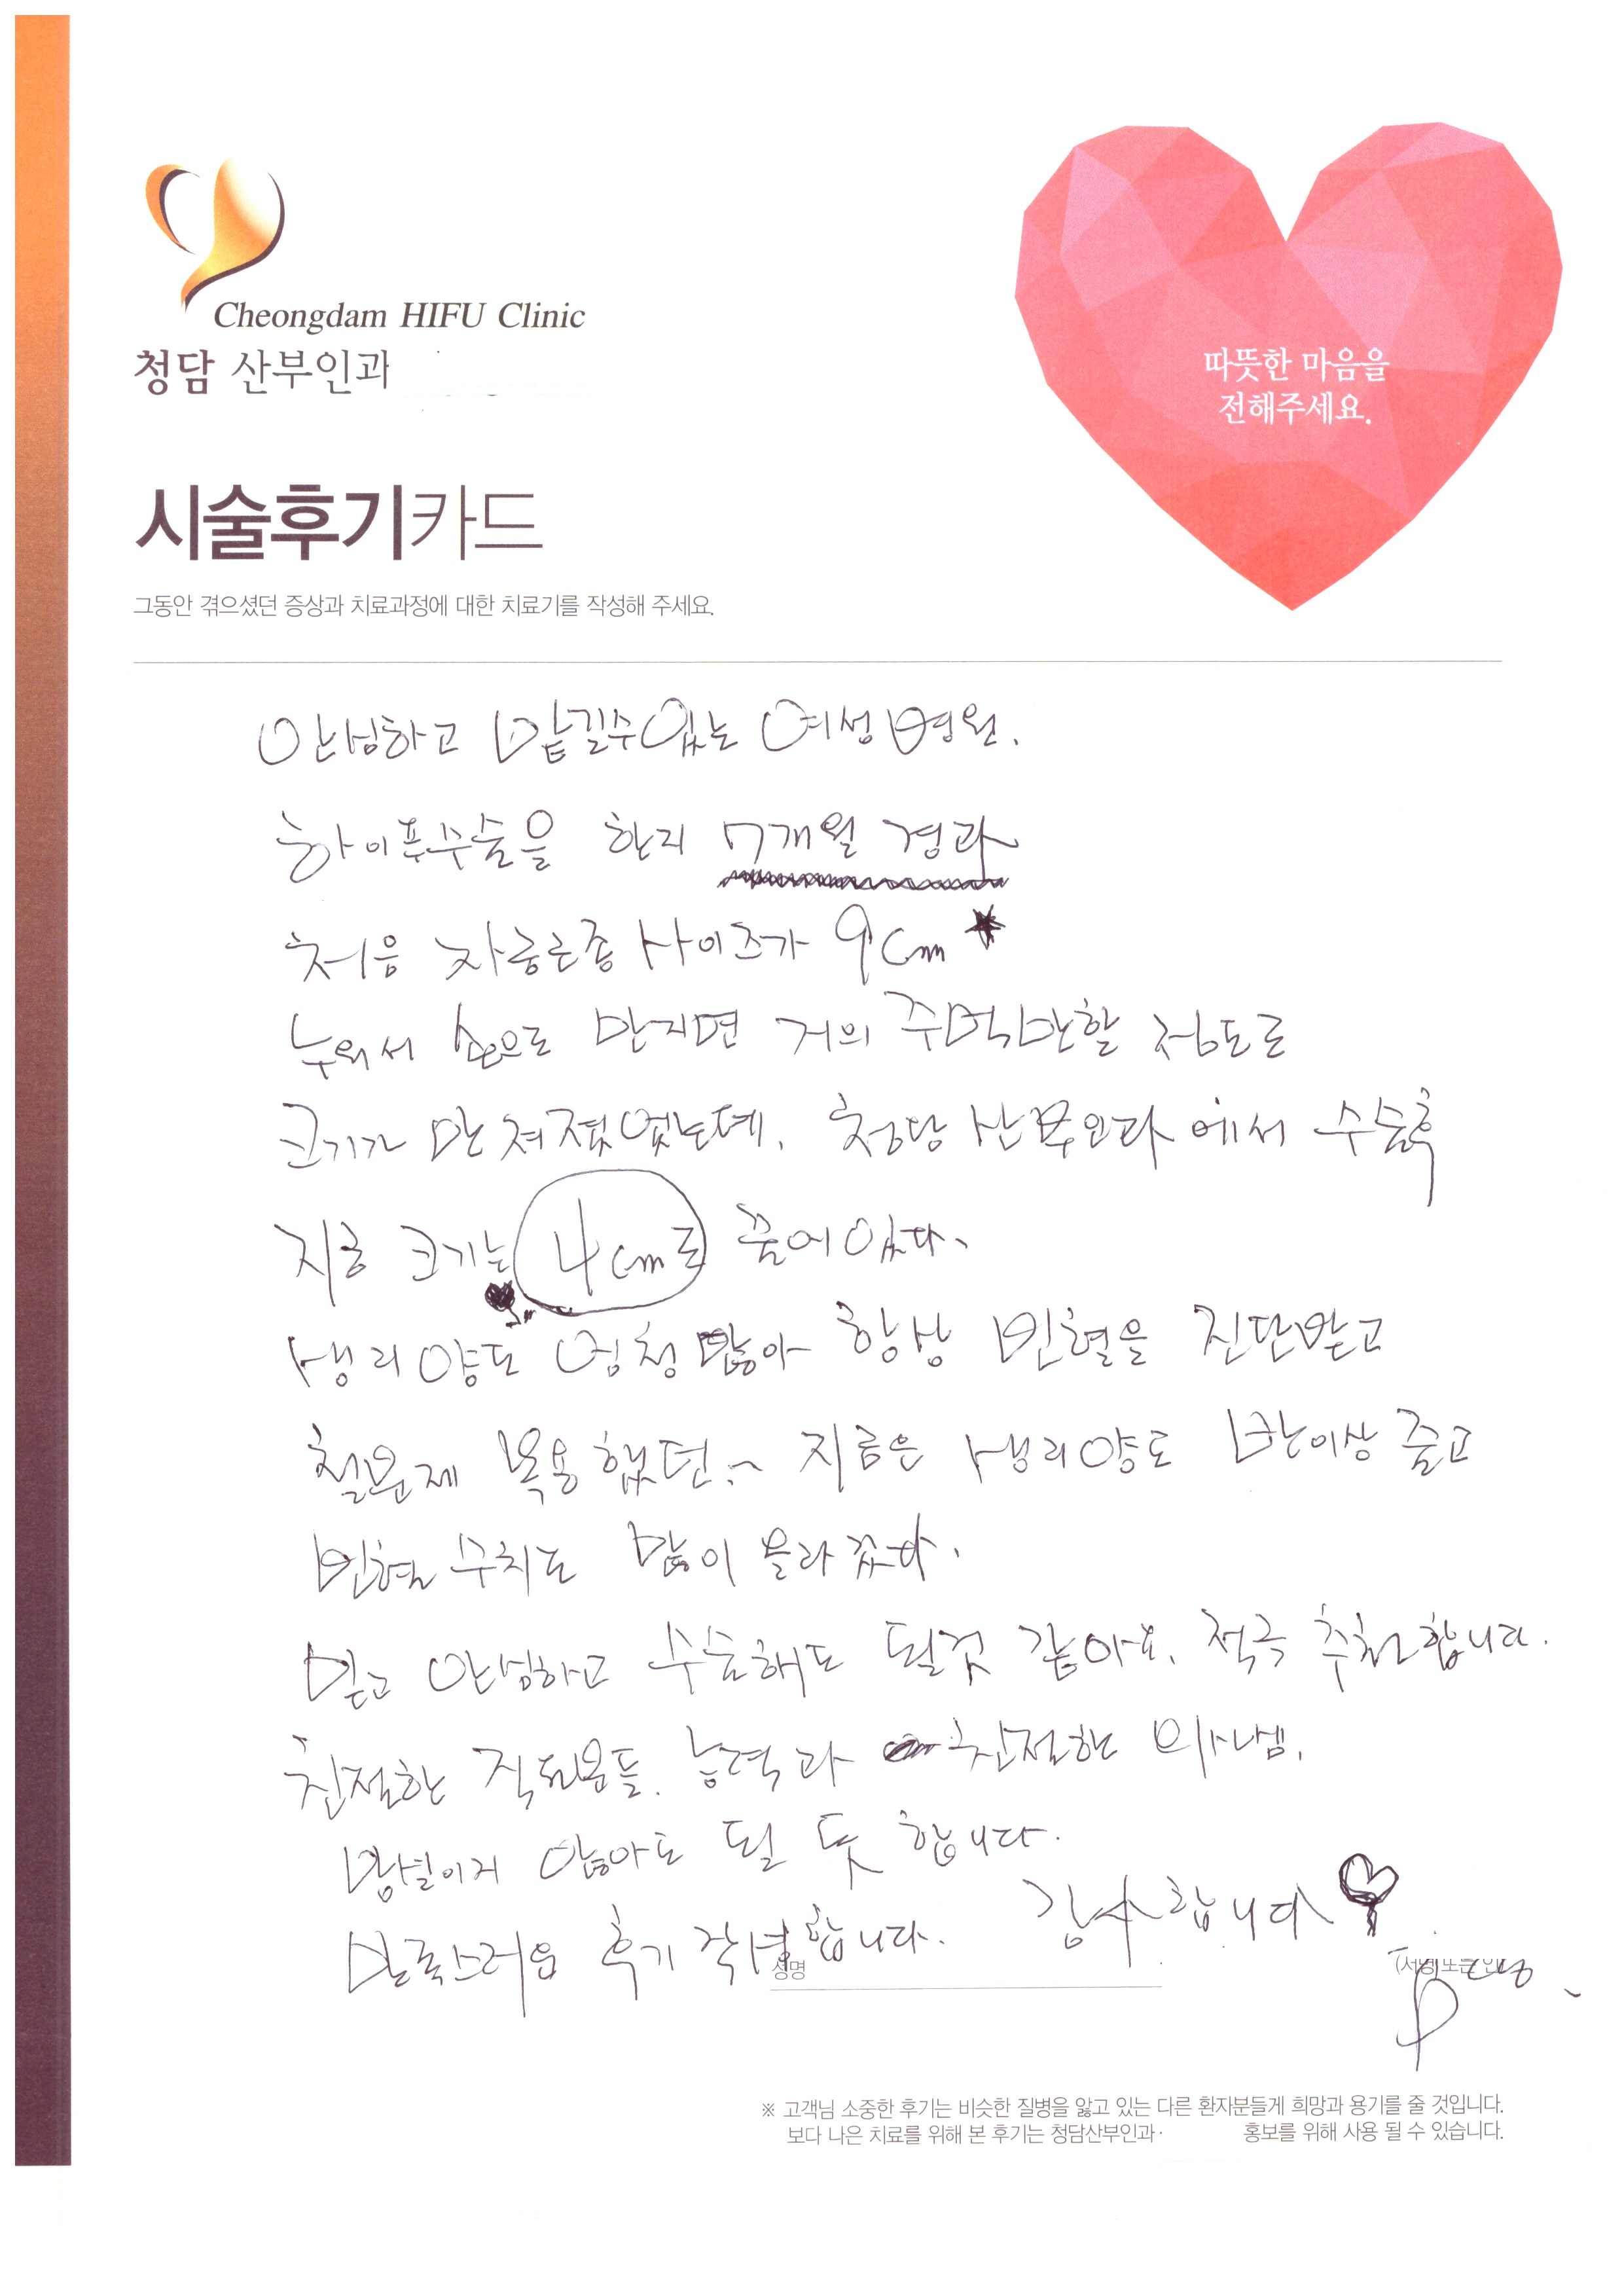 Cheongdam HIFU Clinic
청담 산부인과
따뜻한 마음을
전해주세요.
시술후기카드
그동안 겪으셨던 증상과 치료과정에 대한 치료기를 작성해 주세요.
안심하고 맡길수있는 여성병원.
하이푸수술을 한지 7개월 경과
처음 자궁근종 사이즈가 9cm
누워서 손으로 만지면 거의 주먹만할 정도로
크기가 만져졌었는데, 청담산부인과에서 수술후
지금 크기는 4cm로 줄어있다.
생리양도 엄청 많아 항상 빈혈을 진단받고
철분제 복용했던.. 지금은 생리양도 반이상 줄고
빈혈수치도 많이 올라갔다.
믿고 안심하고 수술해도 될것 같아요. 적극 추천합니다.
친절한 직원분들. 능력과 친절한
망설이지 않아도 될 듯 합니다.
만족스러운 후기 작성합니다. 감사합니다
성명
※ 고객님 소중한 후기는 비슷한 질병을 앓고 있는 다른 환자분들게 희망과 용기를 줄 것입니다.
보다 나은 치료를 위해 본 후기는 청담산부인과· 홍보를 위해 사용 될 수 있습니다.